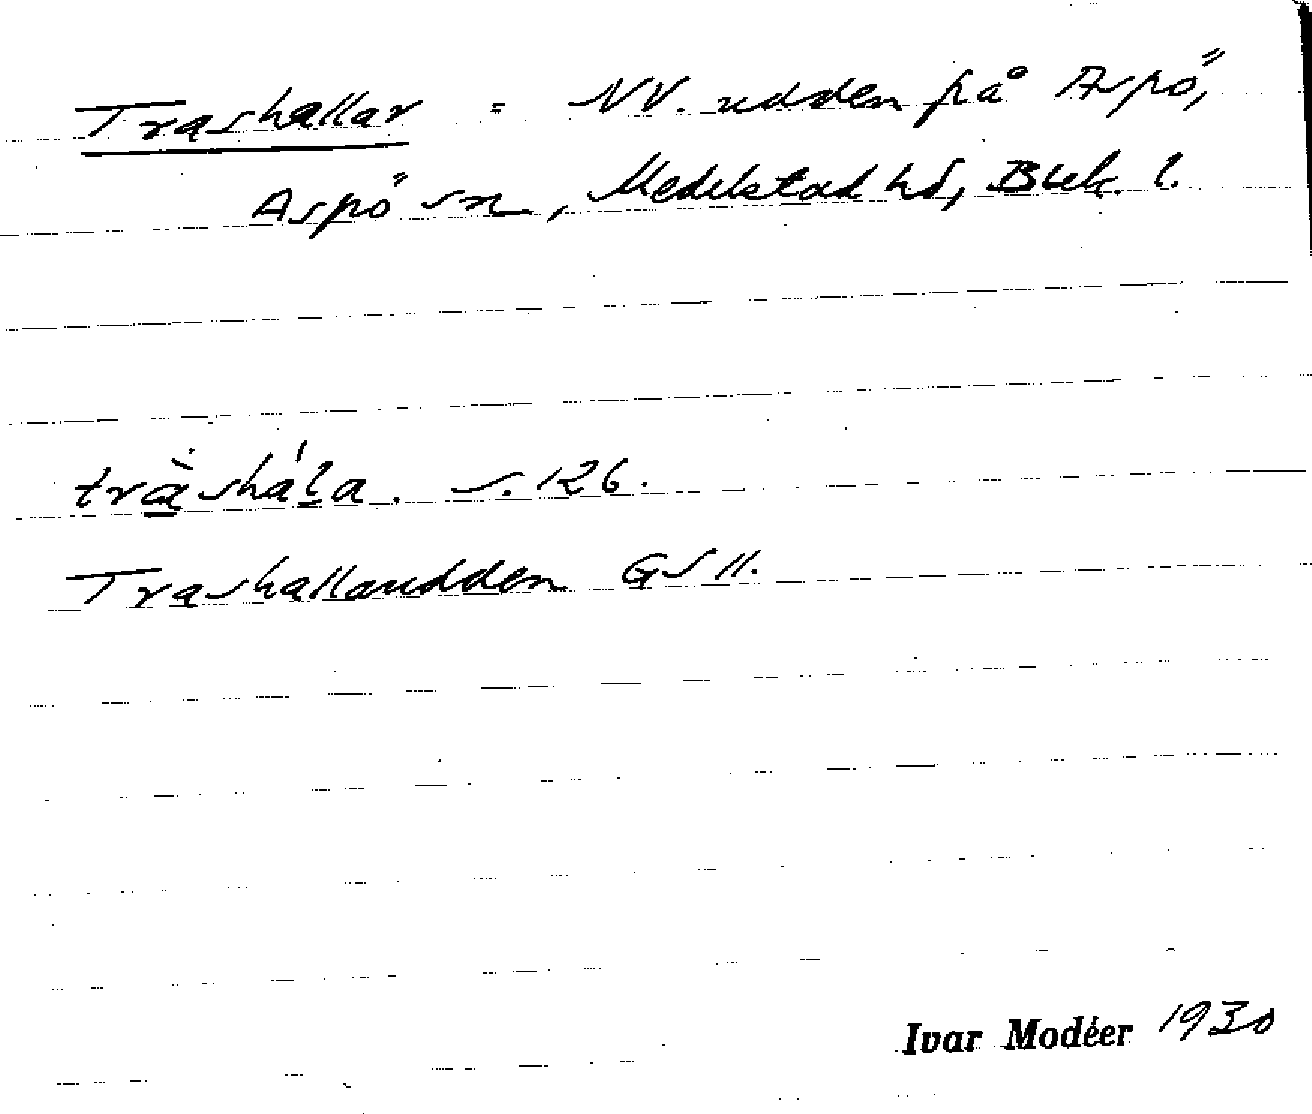 Trashallar = NV. udden på Aspö,
Aspö sn, Medelstad hd, Blek. l.
s. 126.
Trashallaudden GS 11.
Ivar Modéer 1930